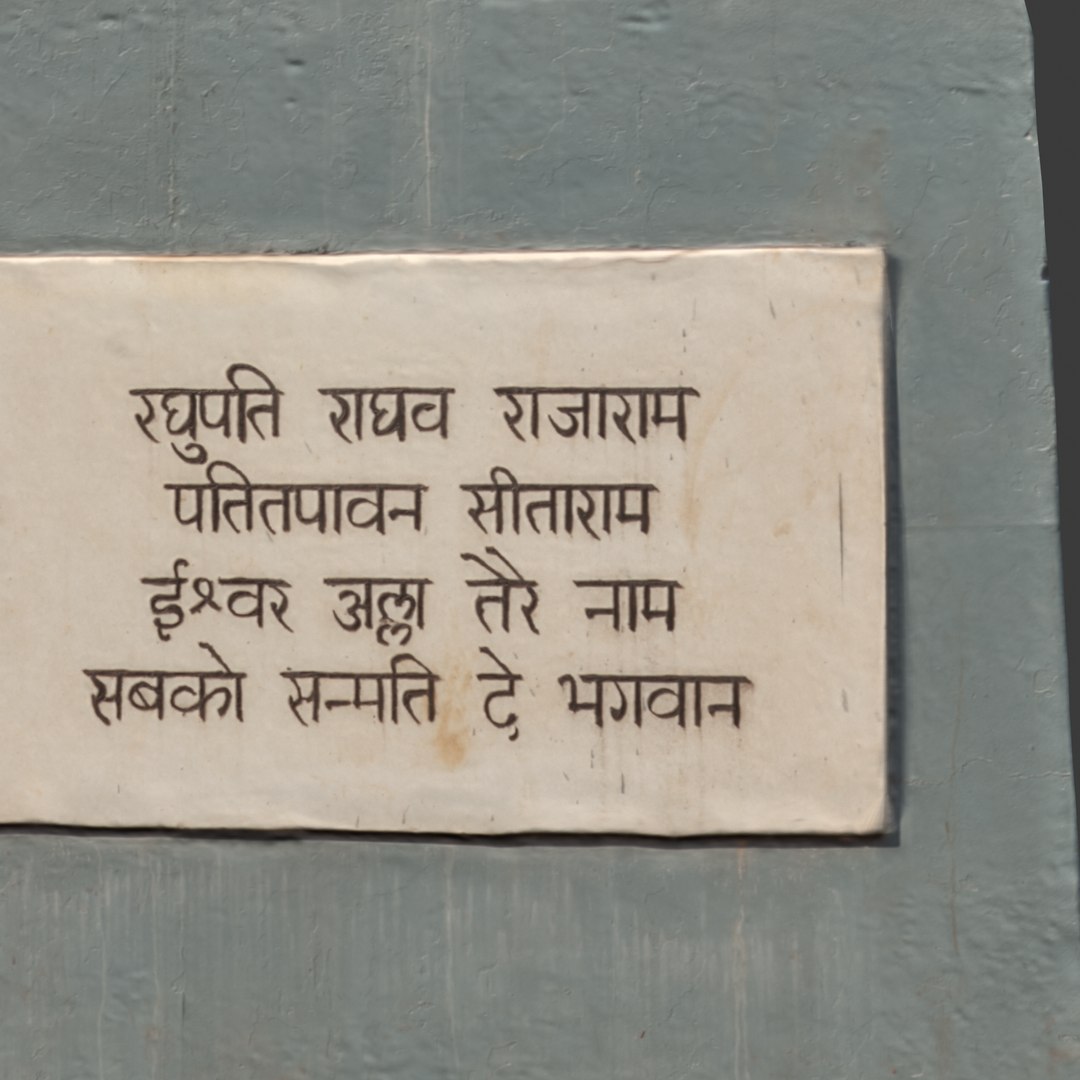 रघुपति राघव राजाराम
पतितपावन सीताराम
ईश्वर अल्ला तेरे नाम
सबको सन्मति दे भगवान